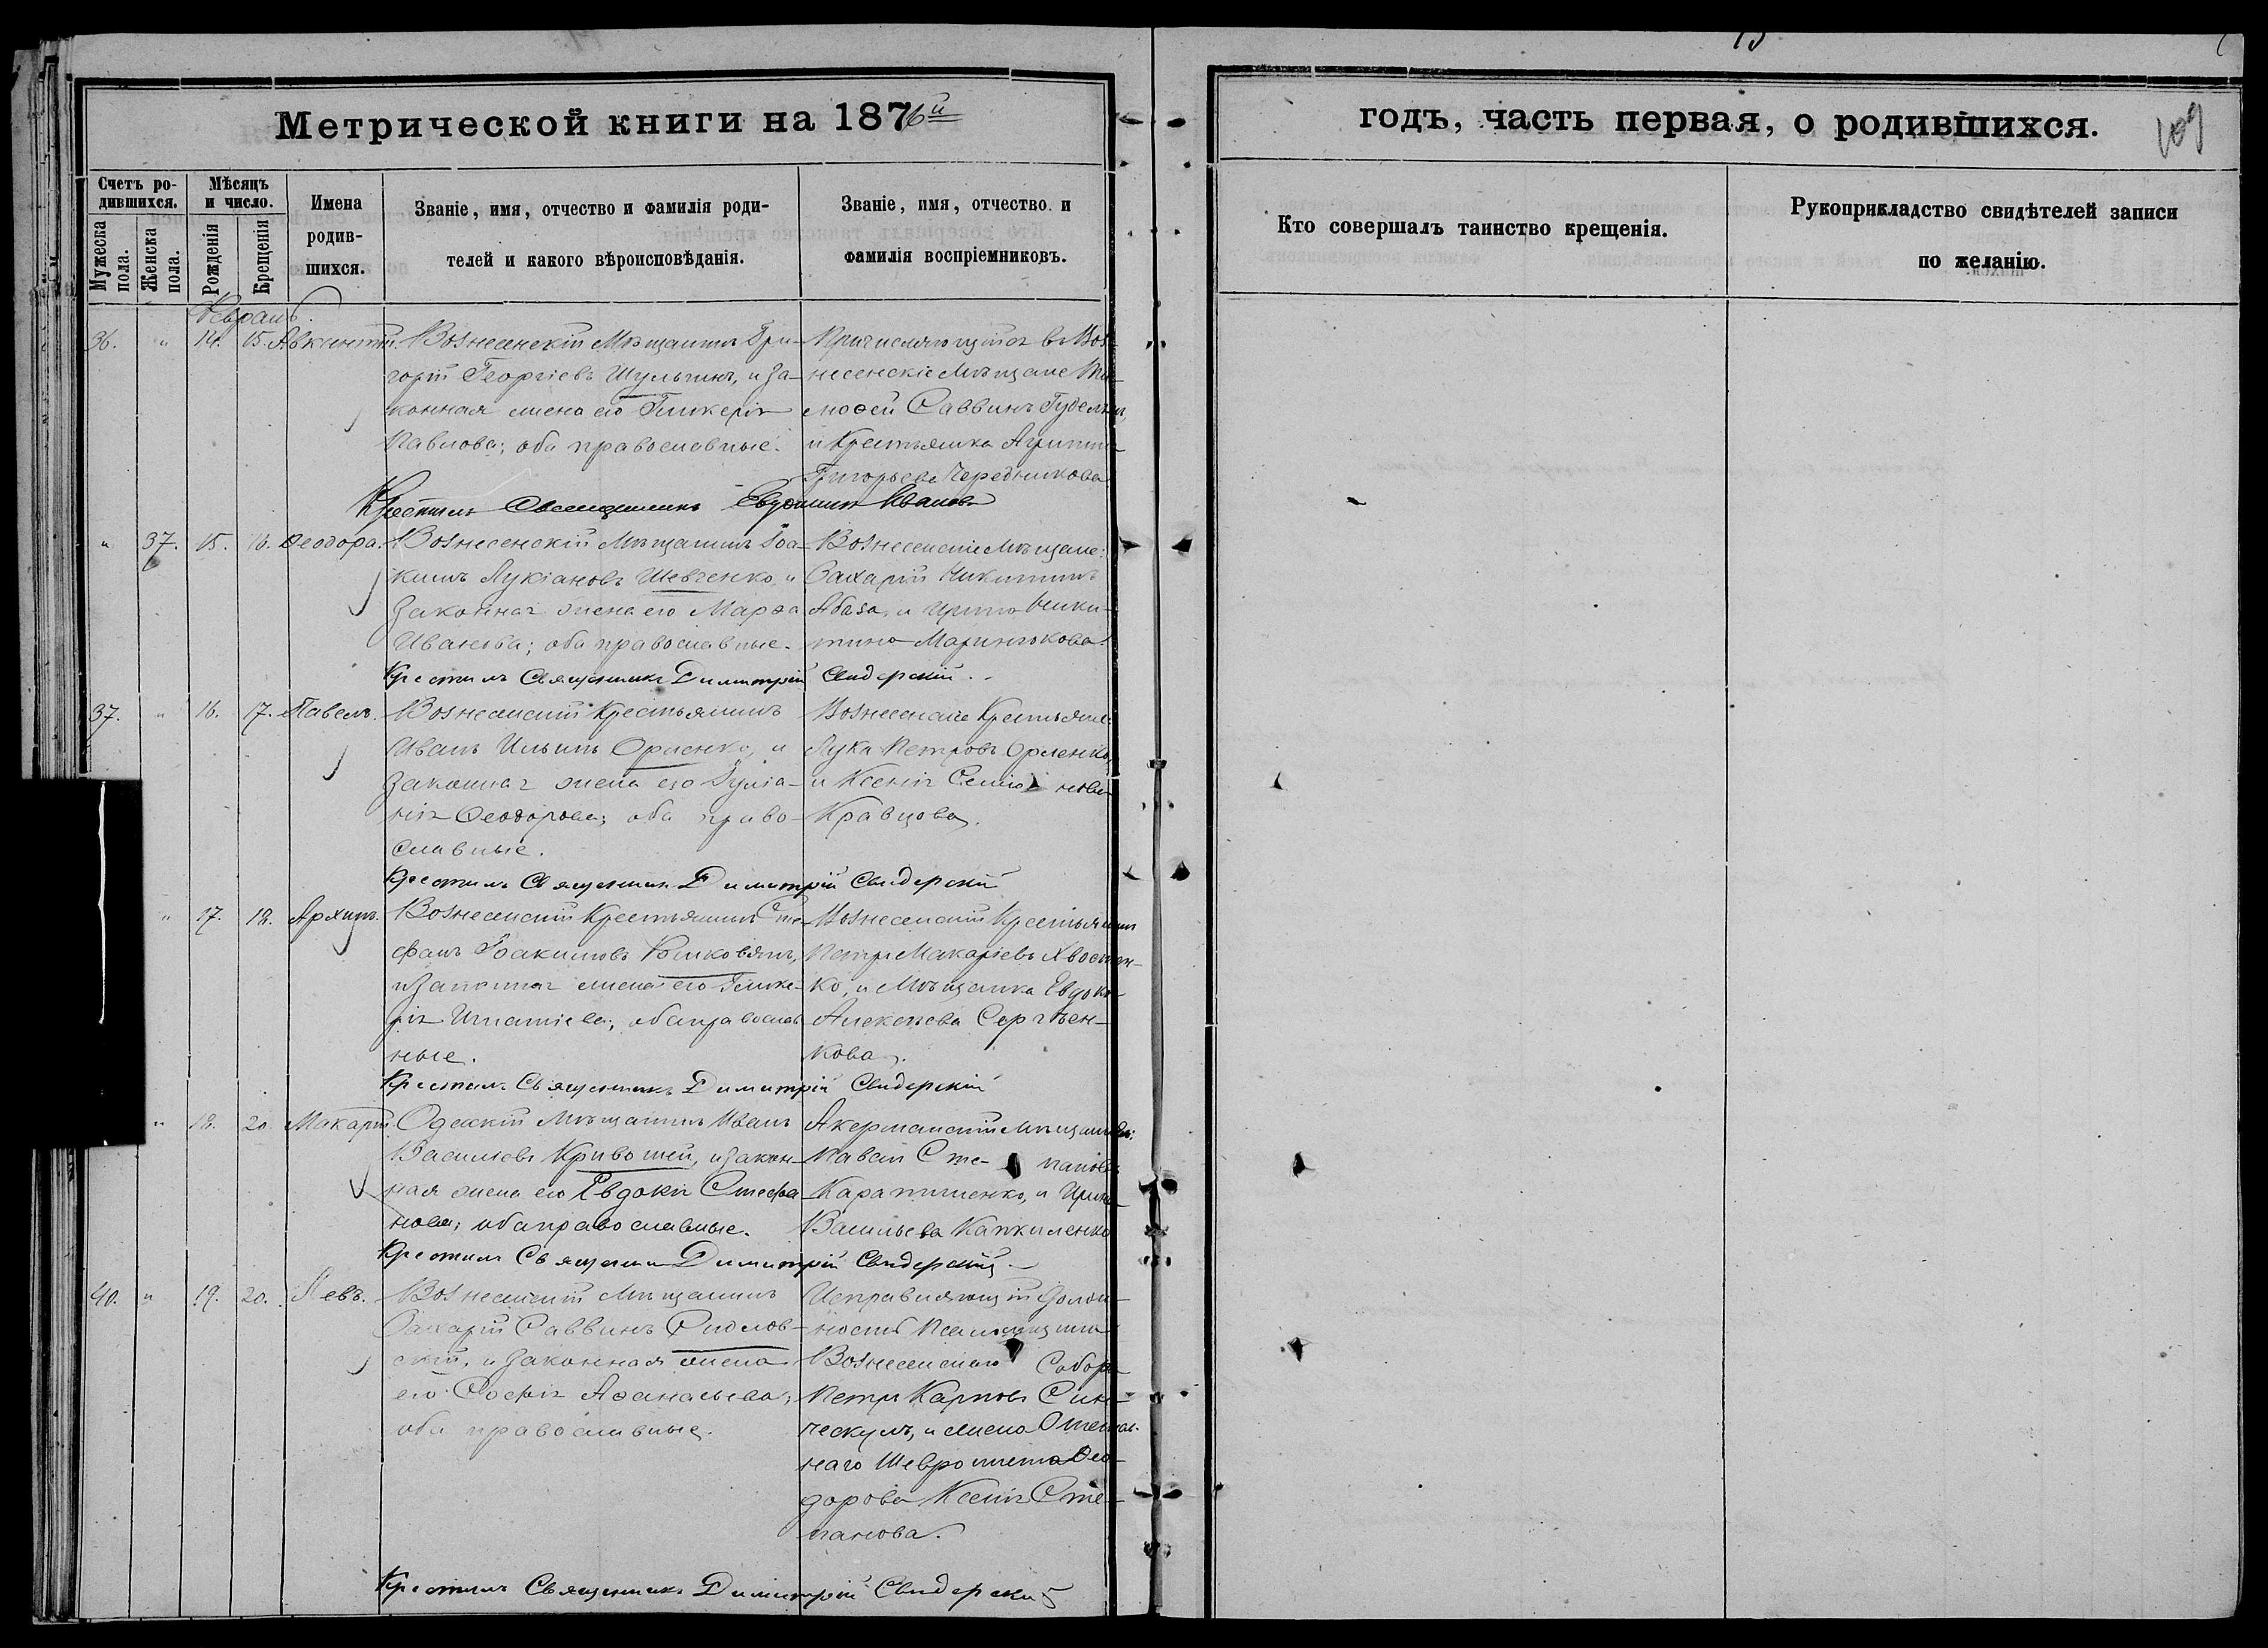 Метрической книги на 1876й
годъ, часть первая, о родившихся.
109
Счетъ родившихся.
Мужеска пола.
Женска пола.
Мѣсяцъ и число.
Рожденія
Крещенія
Имена родившихся.
Званіе, имя, отчество и фамилія родителей и какого вѣроисповѣданія.
Званіе, имя, отчество и фамилія воспріемниковъ.
Кто совершалъ таинство крещенія.
Рукоприкладство свидѣтелей записи по желанію.
Февраль.
36. " 14. 15. Авксентій.
Вознесенскій Мѣщанинъ Гри-
горій Георгіевъ Шульгинъ, и за-
конная жена его Гликерія
Павлова; оба православные.
Причисляющійся въ Воз-
несенскіе Мѣщане Ти-
моѳей Саввинъ
и Крестьянка
Григорьева Чередникова
Крестилъ Священникъ Евдокимъ Ивановъ
" 37. 15. 16. Ѳеодора.
Вознесенскій Мѣщанинъ Іоа-
кимъ Лукіановъ Шевченко, и
законная жена его Марѳа
Иванова; оба православные.
Вознесенскіе Мѣщане:
Захарій Никитинъ
Абаза, и Ирина Ники-
тина Маринюкова.
Крестилъ Священникъ Димитрій Свидерскій.
37. " 16. 17. Павелъ.
Вознесенскій Крестьянинъ
Иванъ Ильинъ Орленко, и
законная жена его Іуліа-
нія Ѳеодорова; оба право-
славные.
Вознесенскіе Крестьяне:
Лука Петровъ Орленко,
и Ксенія Семіонова
Кравцова.
Крестилъ Священникъ Димитрій Свидерскій
" 17. 18. Архипъ.
Вознесенскій Крестьянинъ Сте-
фанъ Іоакимовъ
и законная жена его Глике-
рія Игнатіева; оба православ-
ные.
Вознесенскій Крестьянинъ
Петръ Макаріевъ Хвостен-
ко, и Мѣщанка Евдокія
Алексѣева Сергѣен-
кова.
Крестилъ Священникъ Димитрій Свидерскій
" 18. 20. Макарій.
Одесскій Мѣщанинъ Иванъ
Васильевъ Кривошей, и закон-
ная жена его Евдокія Стефа-
нова; оба православные.
Акерманскій Мѣщанинъ:
Павелъ Степановъ
и Ирина
Васильева
Крестилъ Священникъ Димитрій Свидерскій
40. " 19. 20. Левъ.
Вознесенскій Мѣщанинъ
Захарій Саввинъ
скій, и законная жена
его Софія Аѳанасьева;
оба православные.
Исправляющій долж-
ность Псаломщика
Вознесенскаго Собора
Петръ Карповъ Син-
ческулъ, и жена Отстав-
наго
дорова Ксенія Сте-
панова.
Крестилъ Священникъ Димитрій Свидерскій